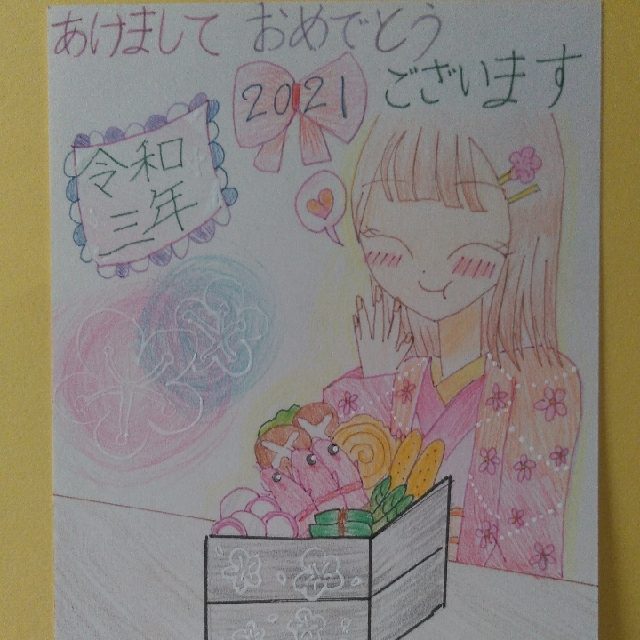 あけまして おめでとう
ございます
2021
令和
三年